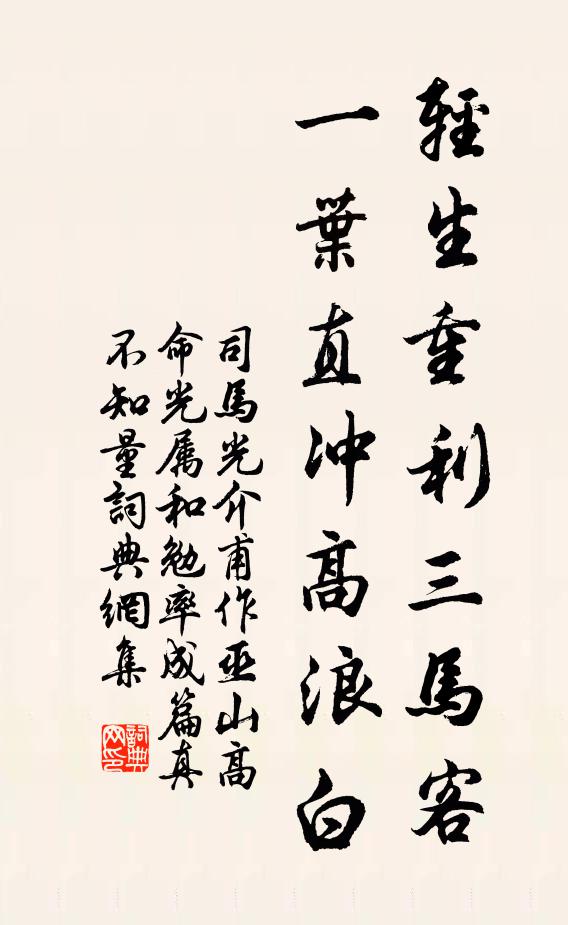 輕生重利三馬客
一葉直沖高浪白
司馬光介甫作巫山高
命光属和勉率成篇真
不知量詞典網集
詞典网印